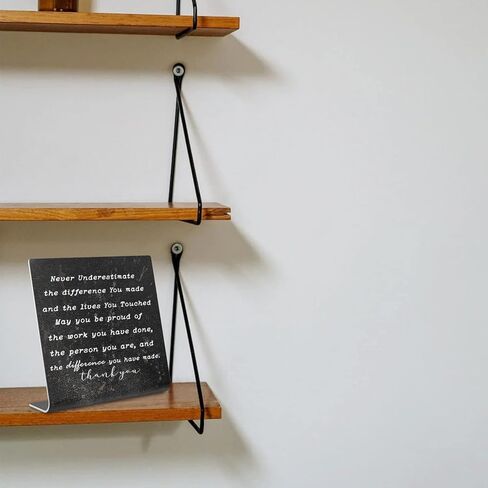 Never Underestimate
the difference You made
and the lives You Touched
May you be proud of
the work you have done,
the person you are, and
the difference you have made.
thank you